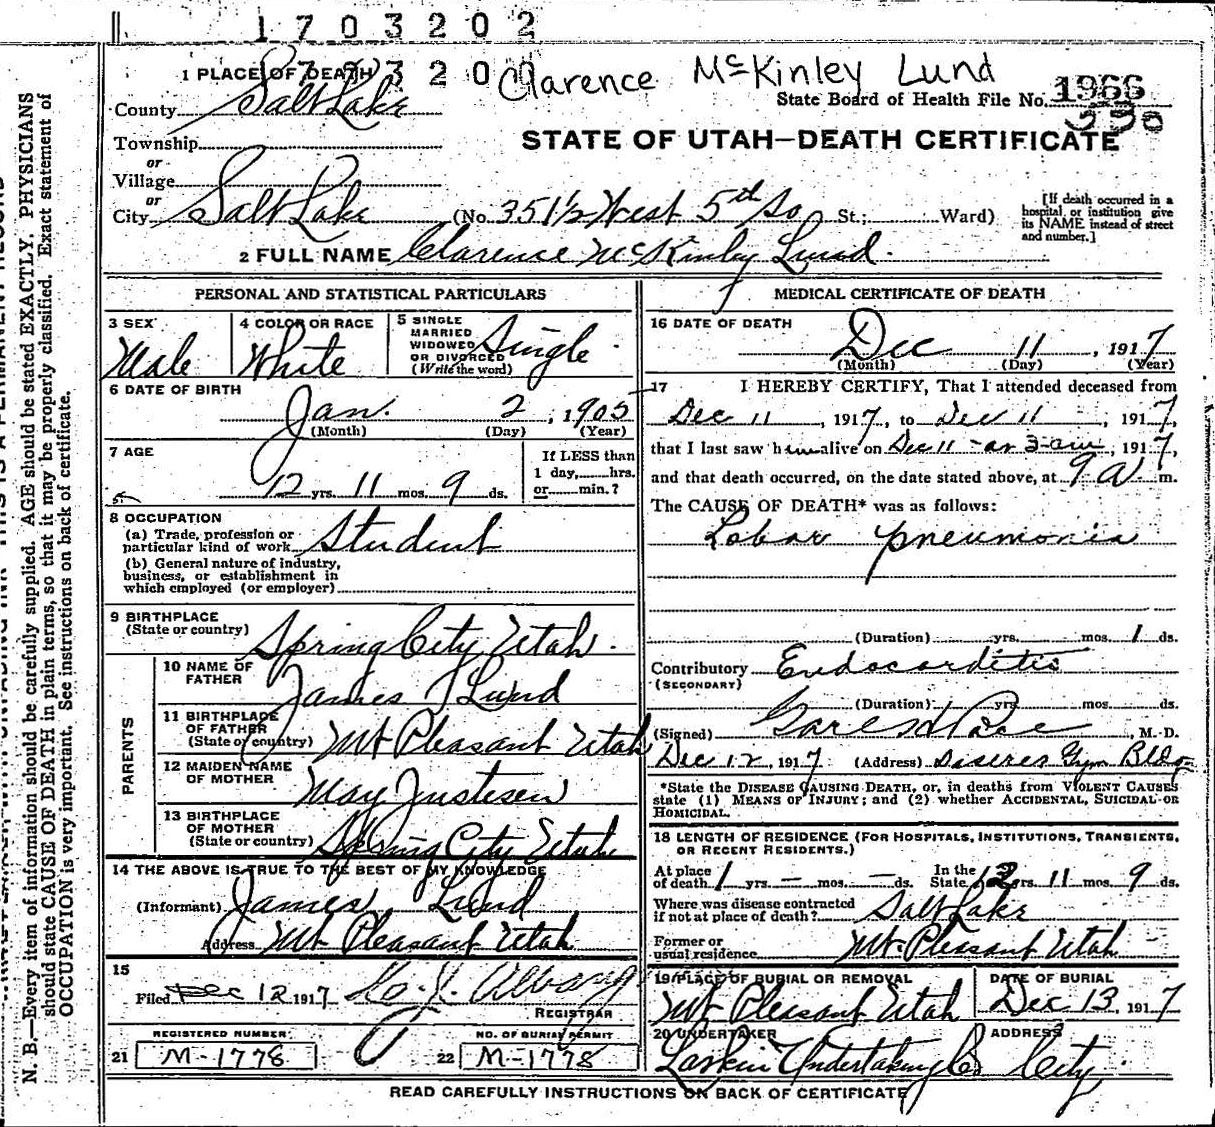 1703202
1 PLACE OF DEATH
Clarence McKinley Lund
County Salt Lake
State Board of Health File No. 1966
Township
or
STATE OF UTAH—DEATH CERTIFICATE
Village
or
City Salt Lake (No. 351½ West 5th So St.; Ward)
[If death occurred in a
hospital or institution give
its NAME instead of street
and number.]
2 FULL NAME Clarence McKinley Lund
PERSONAL AND STATISTICAL PARTICULARS
3 SEX Male
4 COLOR OR RACE White
5 SINGLE
MARRIED
WIDOWED
OR DIVORCED
(Write the word) Single
6 DATE OF BIRTH
Jan. 2, 1905
(Month) (Day) (Year)
7 AGE
12 yrs. 11 mos. 9 ds.
If LESS than
1 day, hrs.
or min.?
8 OCCUPATION
(a) Trade, profession or
particular kind of work Student
(b) General nature of industry,
business, or establishment in
which employed (or employer)
9 BIRTHPLACE
(State or country) Spring City Utah
PARENTS
10 NAME OF
FATHER James Lund
11 BIRTHPLACE
OF FATHER
(State or country) Mt Pleasant Utah
12 MAIDEN NAME
OF MOTHER May Justesen
13 BIRTHPLACE
OF MOTHER
(State or country) Spring City Utah
14 THE ABOVE IS TRUE TO THE BEST OF MY KNOWLEDGE
(Informant) James Lund
Address Mt Pleasant Utah
15
Filed Dec 12 1917
REGISTRAR
REGISTERED NUMBER
NO. OF BURIAL PERMIT
21 M-1778 22 M-1778
MEDICAL CERTIFICATE OF DEATH
16 DATE OF DEATH
Dec 11, 1917
(Month) (Day) (Year)
17 I HEREBY CERTIFY, That I attended deceased from
Dec 11, 1917, to Dec 11, 1917,
that I last saw him alive on Dec 11 - at 3 am, 1917,
and that death occurred, on the date stated above, at 9 a. m.
The CAUSE OF DEATH* was as follows:
Lobar pneumonia
(Duration) yrs. mos. 1 ds.
Contributory Endocarditis
(SECONDARY)
(Duration) yrs. mos. ds.
(Signed) , M. D.
Dec 12, 1917 (Address) Deseret Gym Bldg
*State the DISEASE CAUSING DEATH, or, in deaths from VIOLENT CAUSES
state (1) MEANS OF INJURY; and (2) whether ACCIDENTAL, SUICIDAL OR
HOMICIDAL.
18 LENGTH OF RESIDENCE (FOR HOSPITALS, INSTITUTIONS, TRANSIENTS,
OR RECENT RESIDENTS.)
At place
of death 1 yrs. — mos. — ds.
In the
State 12 yrs. 11 mos. 9 ds.
Where was disease contracted
if not at place of death? Salt Lake
Former or
usual residence Mt. Pleasant Utah
19 PLACE OF BURIAL OR REMOVAL
Mt Pleasant Utah
DATE OF BURIAL
Dec 13, 1917
20 UNDERTAKER
Larkin Undertaking Co
ADDRESS
City.
READ CAREFULLY INSTRUCTIONS ON BACK OF CERTIFICATE
N. B.—Every item of information should be carefully supplied. AGE should be stated EXACTLY. PHYSICIANS
should state CAUSE OF DEATH in plain terms, so that it may be properly classified. Exact statement of
OCCUPATION is very important. See instructions on back of certificate.